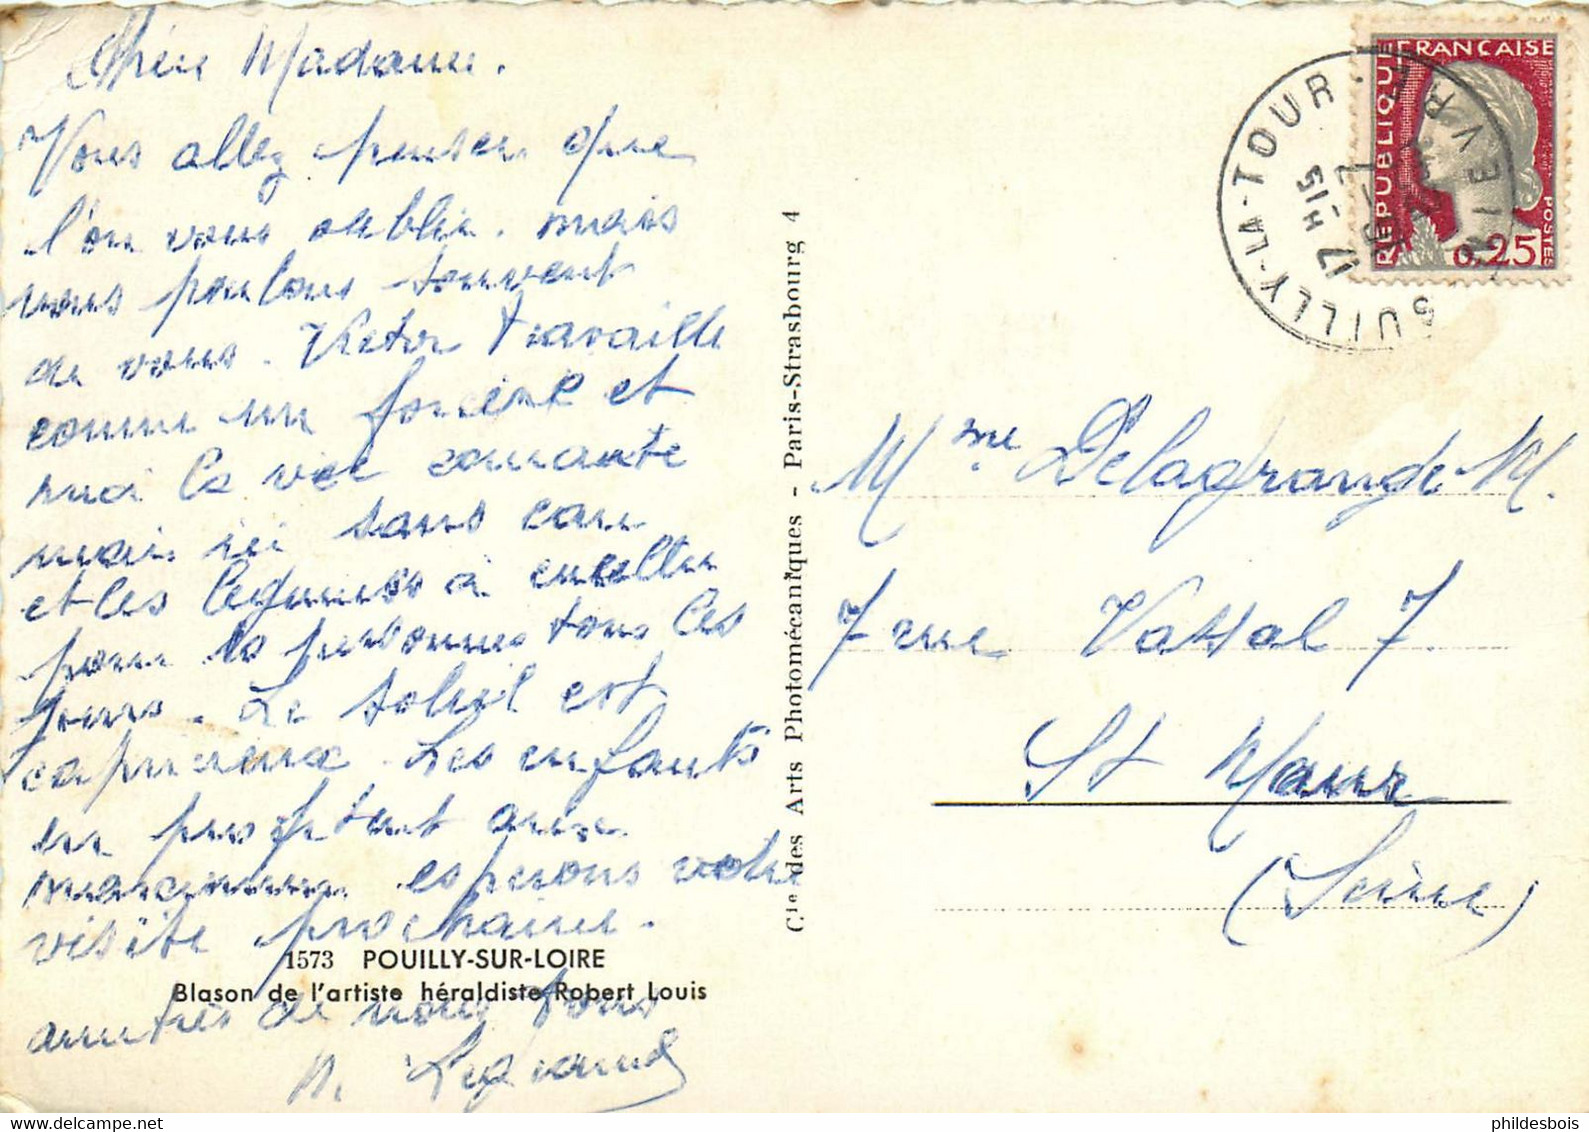 Chère Madame.
Vous allez penser que
l'on vous oublie. mais
nous parlons souvent
de vous. Victor travaille
comme un forcené et
moi la vie courante
mais ici sans eau
et les legumes à cueillir
pour 10 personnes tous les
jours. Le soleil est
capricieux. Les enfants
en profitent avec
esperons votre
visite prochaine.
1573 POUILLY-SUR-LOIRE
Blason de l'artiste héraldiste Robert Louis
amitiés de nous tous
M. Legrand
Cie des Arts Photomécaniques - Paris-Strasbourg 4
SUILLY-LA-TOUR
NIEVRE
17 H 15
REPUBLIQUE FRANÇAISE
POSTES
0,25
Mme Delagrange M.
7 rue Vassal 7.
St Maur
(Seine)
delcampe.net
phildesbois